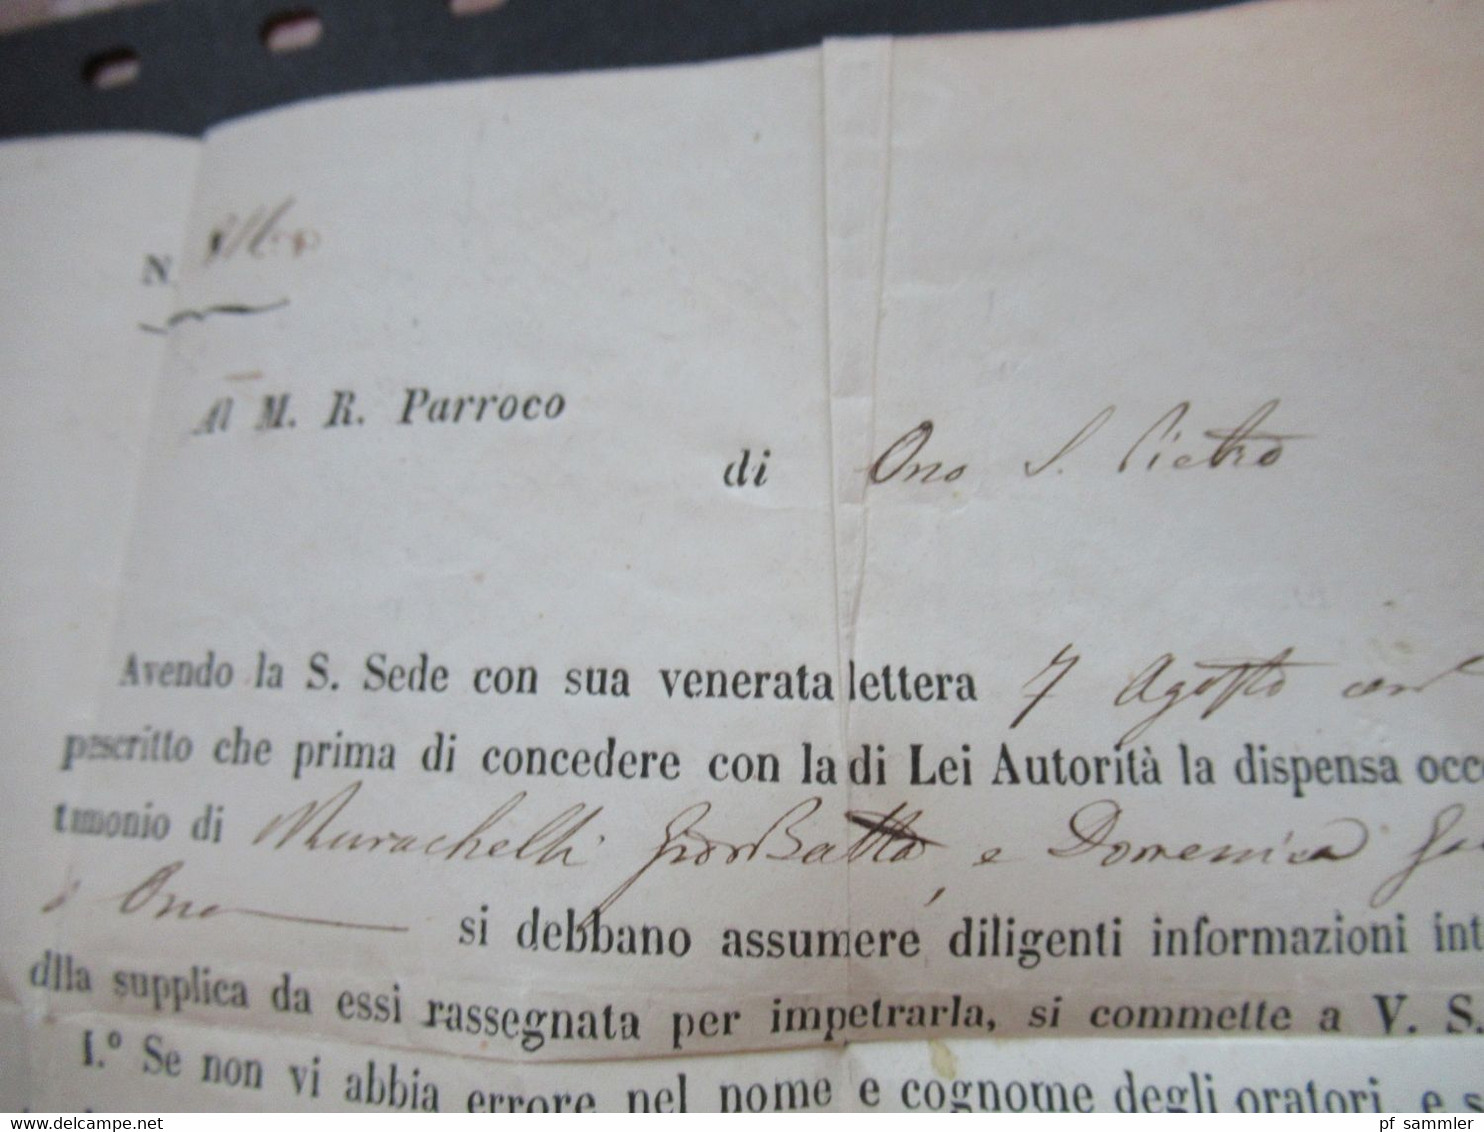 N.
Al M. R. Parroco
di Ono S. Pietro
Avendo la S. Sede con sua venerata lettera 7 Agosto
pescritto che prima di concedere con la di Lei Autorità la dispensa occ
timonio di Murachelli Giov Batta, e Domenica
Ono si debbano assumere diligenti informazioni int
dlla supplica da essi rassegnata per impetrarla, si commette a V. S.
I.º Se non vi abbia errore nel nome e cognome degli oratori, e s
pf sammler